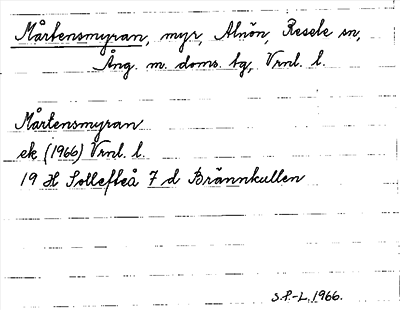 Mårtensmyran, myr, Alnön, Resele sn,
Ång. m. doms. tg, Vrnl. l.
Mårtensmyran
ek (1966) Vrnl. l.
19 H Sollefteå 7 d Brännkullen
S.P.-L. 1966.